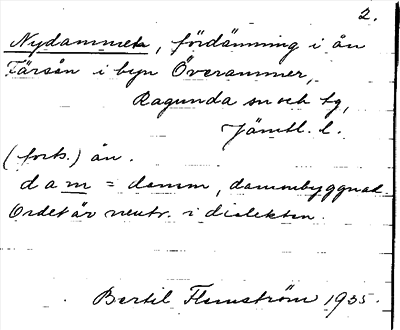 2.
Nydammen, fördämning i ån
Färsån i byn Överammer,
Ragunda sn och tg,
Jämtl. l.
(forts.) ån.
dam = damm, dammbyggnad.
Ordet är neutr. i dialekten.
Bertil Flemström 1935.